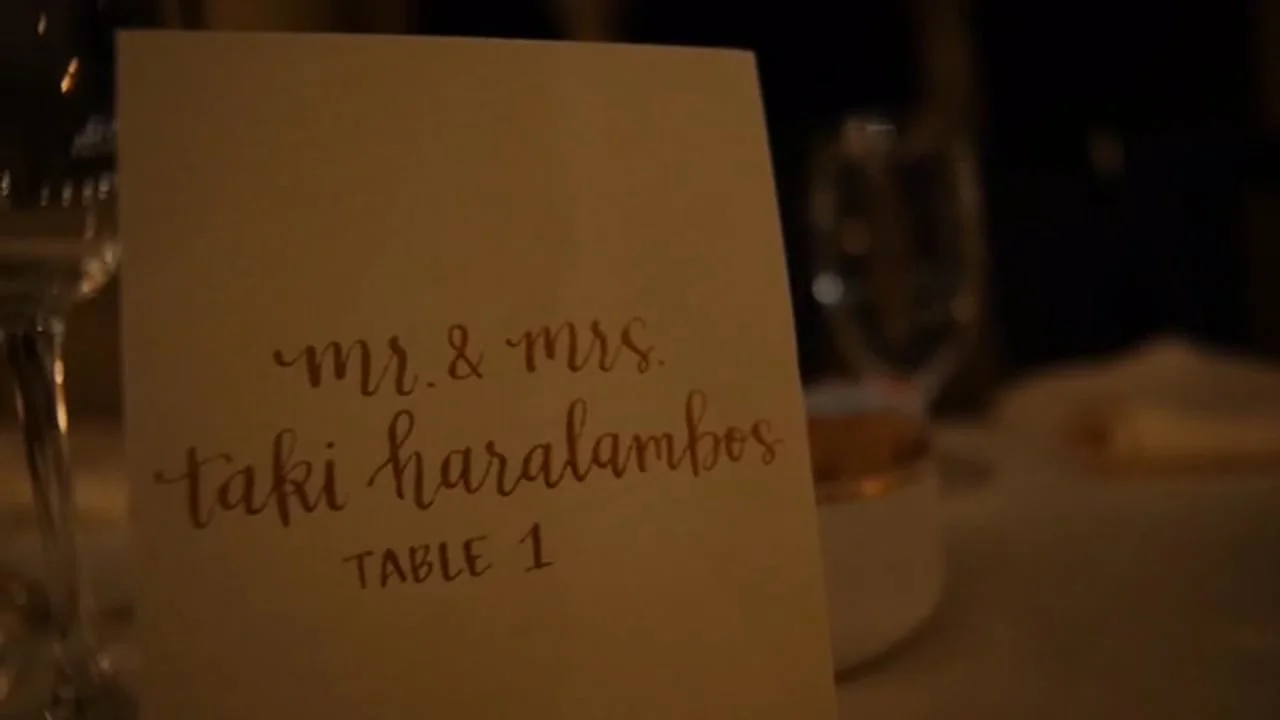 mr. & mrs.
taki haralambos
TABLE 1